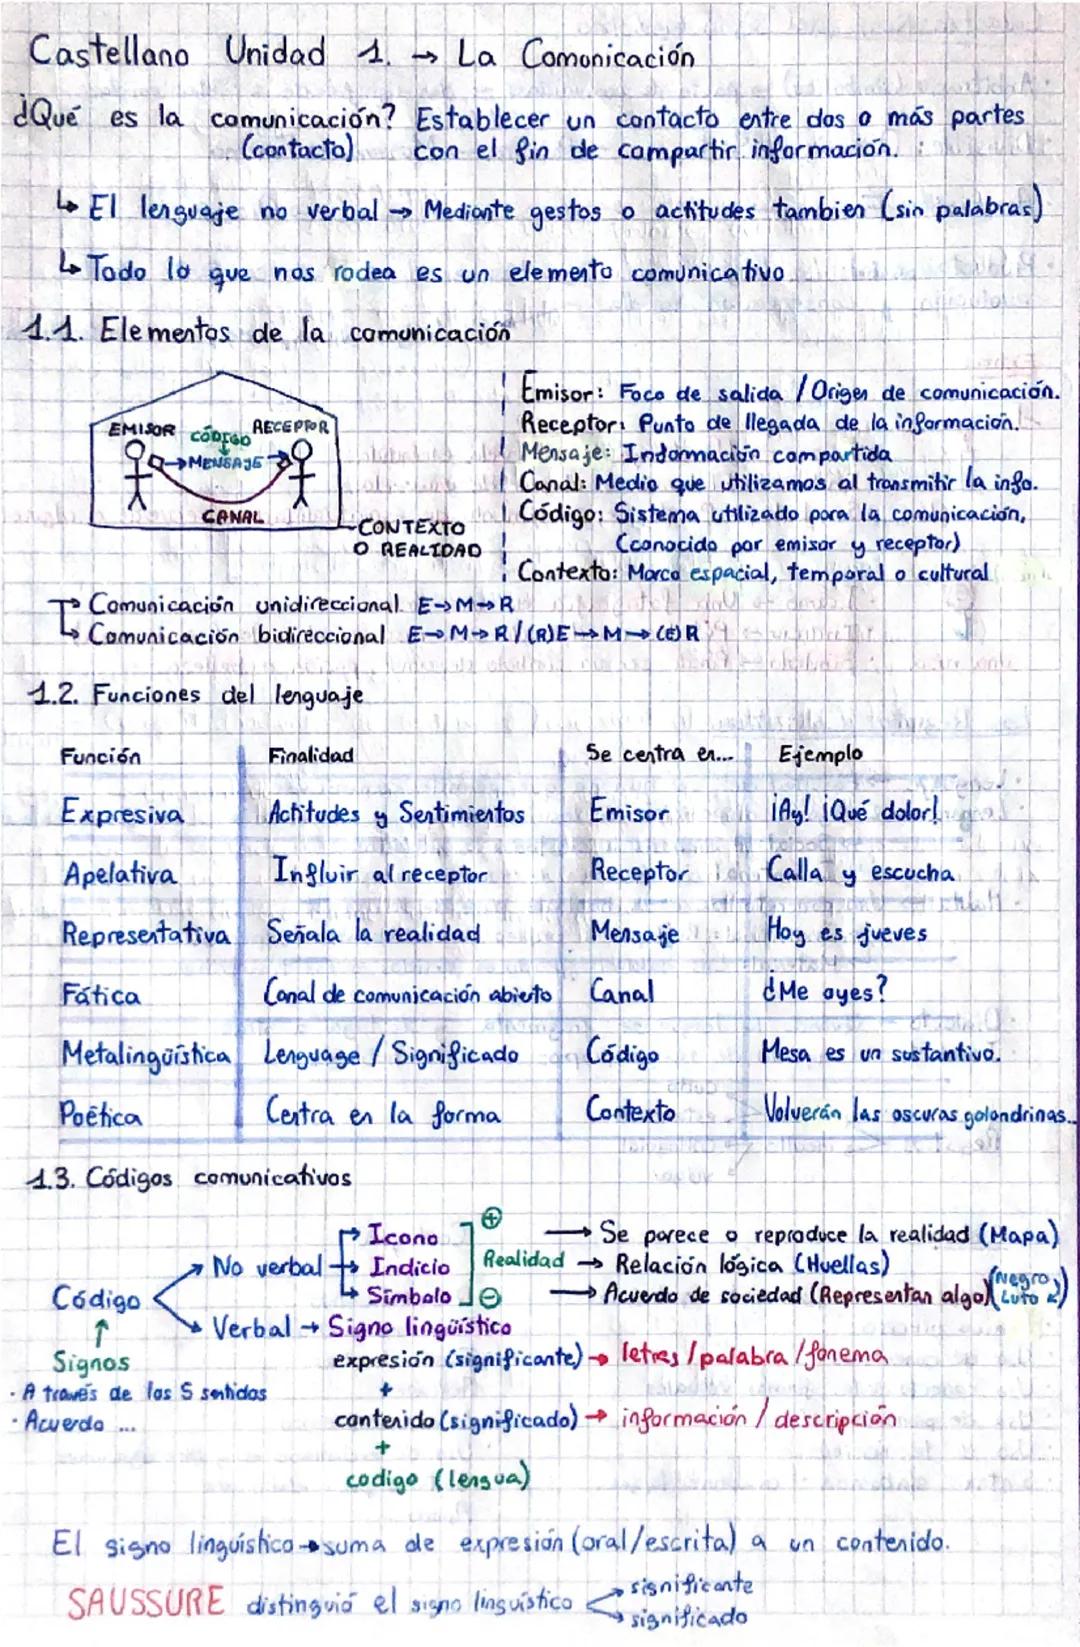 Castellano Unidad 1. → La Comonicación
¿Qué es la comunicación? Establecer un contacto entre dos o más partes
(contacto) con el fin de compartir información.
↳ El lenguaje no verbal → Mediante gestos o actitudes tambien (sin palabras)
↳ Todo lo que nos rodea es un elemento comunicativo
1.1. Elementos de la comunicación
EMISOR CÓDIGO RECEPTOR
→ MENSAJE →
CANAL
CONTEXTO
O REALIDAD
Emisor: Foco de salida / Origen de comunicación.
Receptor: Punto de llegada de la información.
Mensaje: Indormación compartida
Canal: Medio que utilizamos al transmitir la info.
Código: Sistema utilizado para la comunicación,
(conocido por emisor y receptor)
Contexto: Marco espacial, temporal o cultural
→ Comunicación unidireccional E→M→R
↳ Comunicación bidireccional E→M→R/(R)E→M→(E)R
1.2. Funciones del lenguaje
Función Finalidad Se centra en... Ejemplo
Expresiva Actitudes y Sentimientos Emisor ¡Ay! ¡Qué dolor!
Apelativa Influir al receptor Receptor Calla y escucha
Representativa Señala la realidad Mensaje Hoy es jueves
Fática Canal de comunicación abierto Canal ¿Me oyes?
Metalingüística Lenguage / Significado Código Mesa es un sustantivo.
Poética Centra en la forma Contexto Volverán las oscuras golondrinas..
1.3. Códigos comunicativos
Código
↑
Signos
· A través de los 5 sentidos
· Acuerdo ...
No verbal
→ Icono ⊕ → Se parece o reproduce la realidad (Mapa)
→ Indicio Realidad → Relación lógica (Huellas)
↳ Símbolo ⊖ → Acuerdo de sociedad (Representan algo) (Negro, Luto)
Verbal → Signo lingüístico
expresión (significante) → letras / palabra / fonema
+
contenido (significado) → información / descripción
+
codigo (lengua)
El signo linguístico → suma de expresión (oral/escrita) a un contenido.
SAUSSURE distinguió el signo linguístico → significante
→ significado